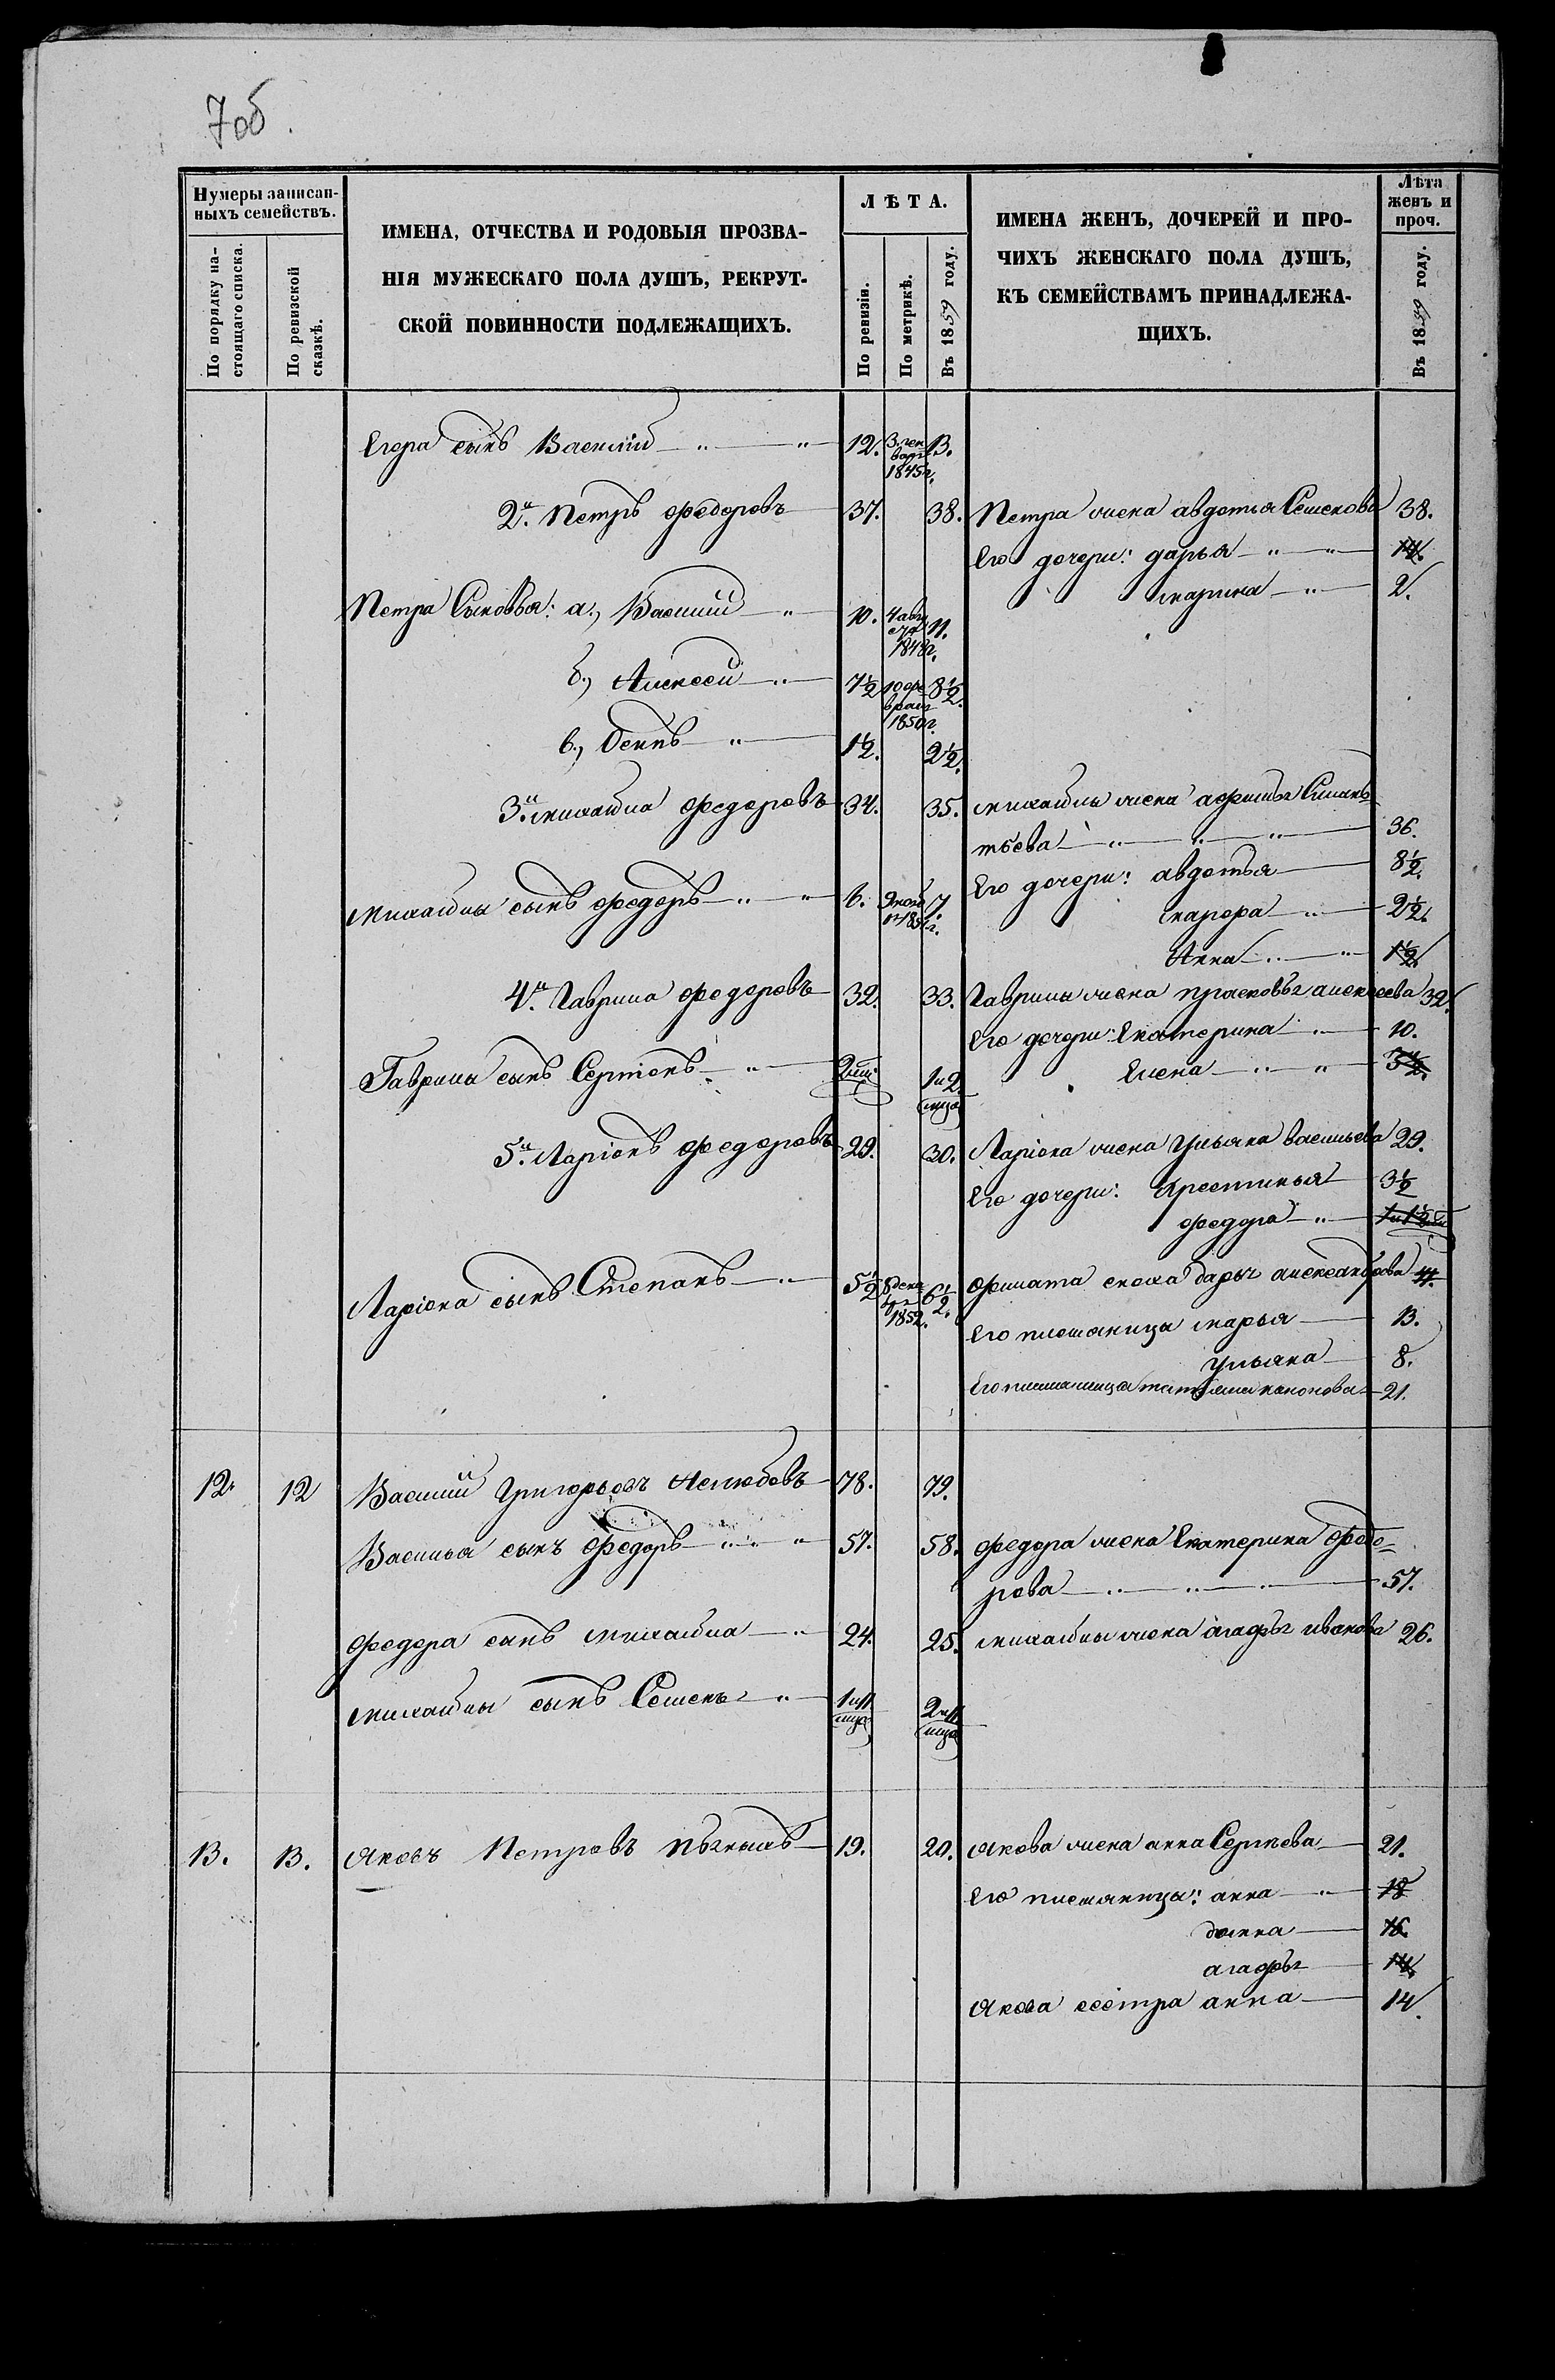 7об.
Нумеры записан-
ныхъ семействъ.
По порядку на-
стоящаго списка.
По ревизской
сказкѣ.
ИМЕНА, ОТЧЕСТВА И РОДОВЫЯ ПРОЗВА-
НІЯ МУЖЕСКАГО ПОЛА ДУШЪ, РЕКРУТ-
СКОЙ ПОВИННОСТИ ПОДЛЕЖАЩИХЪ.
ЛѢТА.
По ревизіи.
По метрикѣ.
Въ 1859 году.
ИМЕНА ЖЕНЪ, ДОЧЕРЕЙ И ПРО-
ЧИХЪ ЖЕНСКАГО ПОЛА ДУШЪ,
КЪ СЕМЕЙСТВАМЪ ПРИНАДЛЕЖА-
ЩИХЪ.
Лѣта
женъ и
проч.
Въ 1859 году.
Егора сынъ Василій 12. 3 ген
варя
1845г. 13.
2й. Петръ федоровъ 37. 38. Петра жена авдотья Семенова 38.
Его дочери: дарья 14.
марина 2.
Петра Сыновья: а., Василий 10. 4 авгу
ста
1848г. 11.
б., Алексей 7½ 10 фе
враля
1850г. 8½.
в., 1½. 2½.
3й. михайла федоровъ 34. 35. михайлы жена афимья
тьева 36.
Его дочери: авдотья 8½.
михайлы сынъ федоръ 6. 7. 2½.
Анна 1½
4й. Гаврила федоровъ 32. 33. Гаврилы жена прасковья алексеева 32.
Его дочери: Екатерина 10.
Гаврилы сынъ 2 1 и 2
мца
Елена 3½.
5й. Ларіонъ федоровъ 29. 30. Ларіона жена ульяна васильева 29.
Его дочери: 3½
федора
Ларіона сынъ Степанъ 5½ 8 дека
бря
1852. 6½. филата сноха дарья александрова
Его племяница марья 13.
ульяна 8.
Его племяница 21.
12. 12 Василий григорьевъ 78. 79.
Василья сынъ федоръ 57. 58. федора жена Екатерина федо=
рова 57.
федора сынъ михайла 24. 25. михайлы жена агафья иванова 26.
михайлы сынъ Семенъ 1 и 11
мца 2 и 11
мца
13. 13. яковъ Петровъ 19. 20. якова жена анна Сергѣева 21.
Его племяницы: анна 18
16.
агафья 14.
якова сестра анна 14.